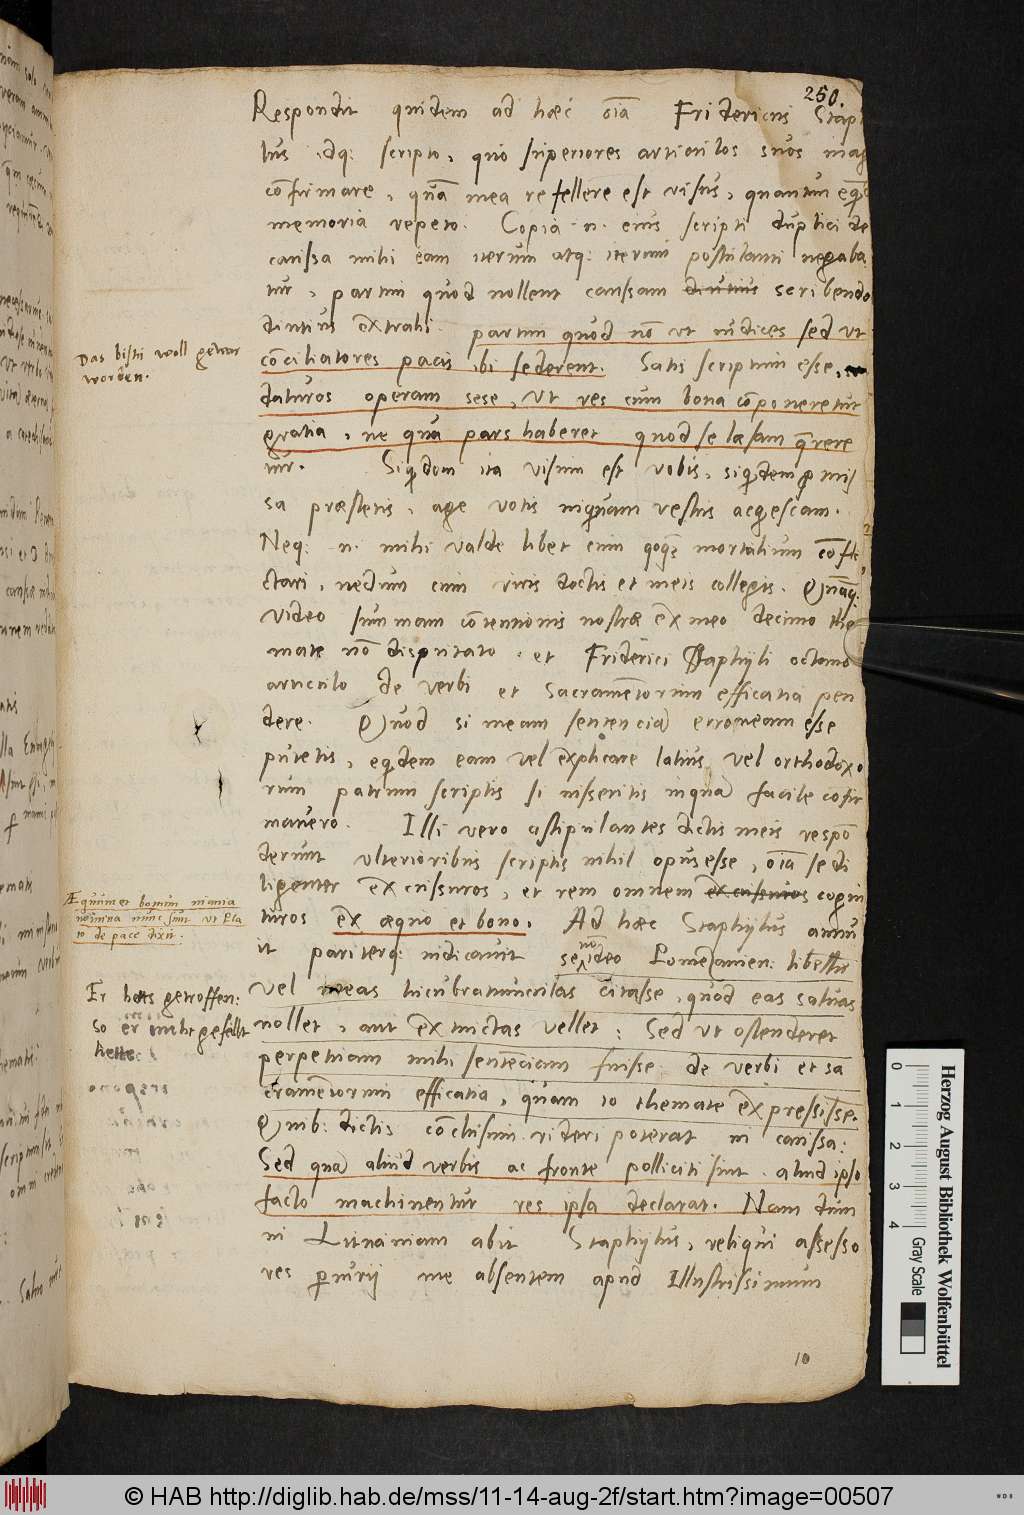 250.
Respondit quidem ad hæc oīa Fridericus Staphi
lus idq: scripto, quo superiores articulos suos mag
cōfirmare, quā mea refellere est visus, quantum eq
memoria repeto. Copia n. eius scripti duplici de
caussa mihi eam iterum atq: iterum postulanti negaba
tur, partim quod nollent caussam diutius scribendo
diutius extrahi. partim quod nō ut iudices sed ut
cōciliatores pacis ibi sederent. Satis scriptum esse,
daturos operam sese, ut res cum bona cōponeretur
gratia, ne qua pars haberet quod se læsam q̄rere
tur. Siq̄dem ita visum est vobis, siq̄dem p̱mis
sa præstetis, age votis niquam vestris acq̄escam.
Neq: n. mihi valde libet cum mortalium cōfli
ctari, nedum cum viris doctis et meis collegis.
video summam cōtentionis nostræ ex meo decimo the
mate nō disputato, et Friderici Staphyli octavo
articulo de verbi et Sacramētorum efficatia pen
dere. Quod si meam sentencia erroneam esse
putetis, eq̄dem eam vel explicare latius vel orthodoxo
rum patrum scriptis si iusseritis inqua facile cōfir
mavero. Illi vero astipulantes dictis meis respō
derunt ulterioribus scriptis nihil opus esse, oīa se di
ligenter excussuros, et rem omnem excussuros cogni
turos ex æquo et bono. Ad hæc Staphylus annu
it pariterq: iudicavit se video Pomezanien: libellū
vel meas lucubratiunculas citasse, quod eas salvas
nollet, aut extinctas vellet: Sed ut ostenderet
perpetuam mihi sentēciam fuisse de verbi et sa
cramētorum efficatia, quam 10 themate expressisse.
Quib: dictis cōclusum videri poterat in caussa:
Sed qua aliud verbis ac fronte polliciti sint, aliud ipso
facto machinentur res ipsa declarat. Nam dum
in Lituaniam abit Staphylus, reliqui assesso
res p̱iurij me absentem apud Illustrissimum
10
Das bistu woll gewar
worden.
Æquum et bonum inania
nomina nunc sunt ut Pla
to de pace dixit.
Er hats getroffen:
So er nicht gefellt
hette
Herzog August Bibliothek Wolfenbüttel
0 1 2 3 4 Gray Scale
© HAB http://diglib.hab.de/mss/11-14-aug-2f/start.htm?image=00507